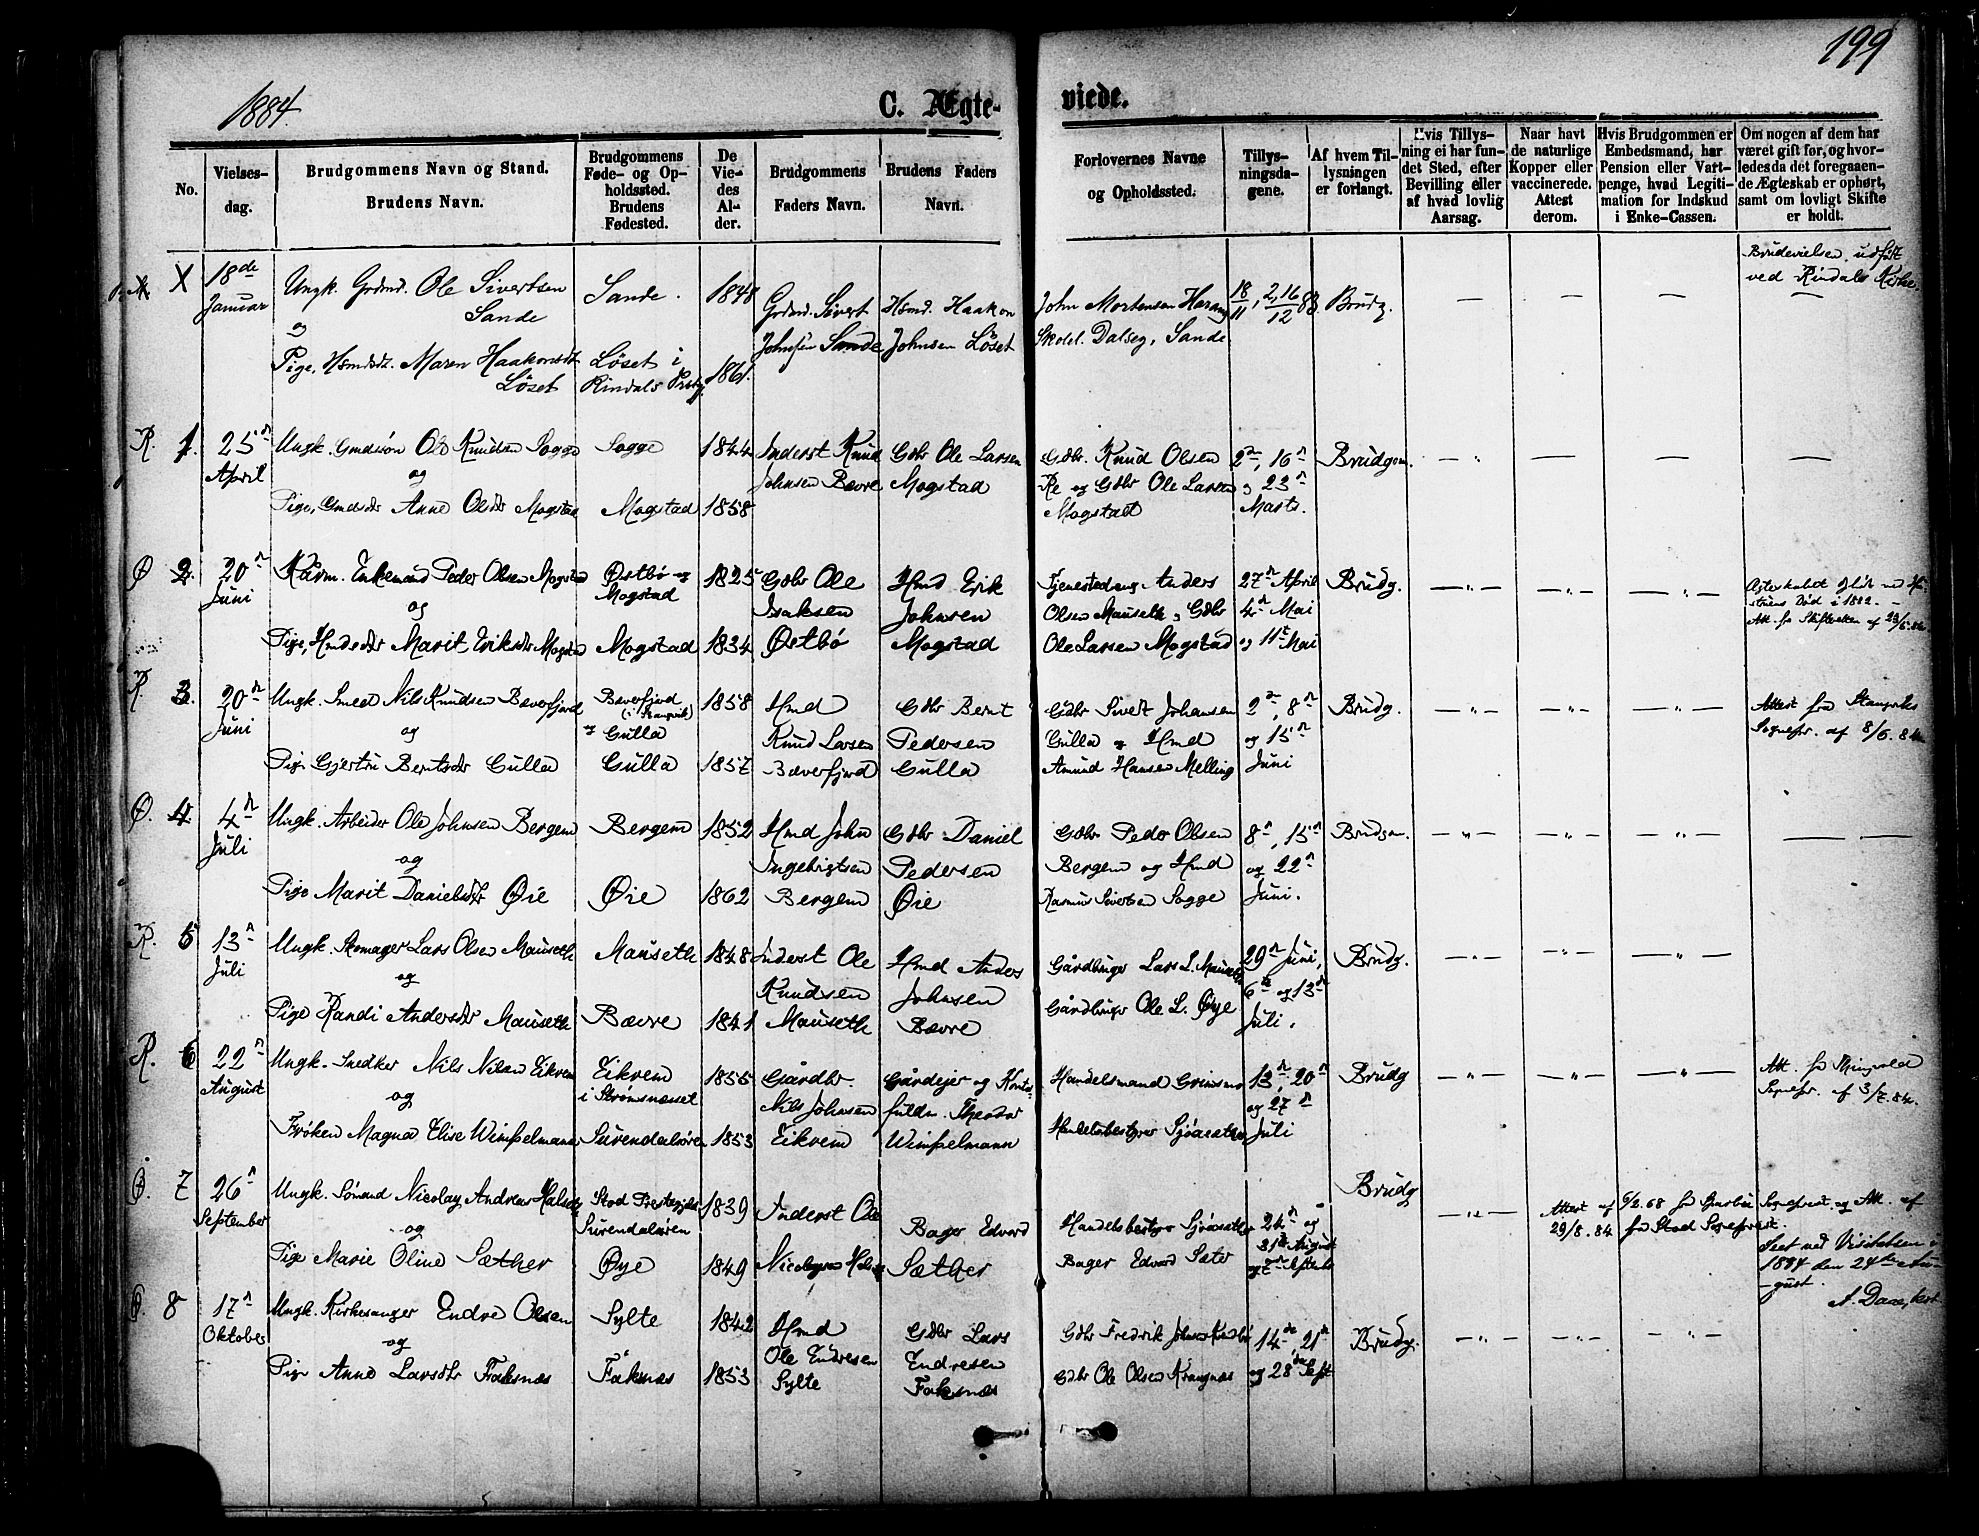 199
1884.
C. Ægteviede.
No.
Vielsesdag.
Brudgommens Navn og Stand.
Brudens Navn.
Brudgommens Føde- og Opholdssted. Brudens Fødested.
De Viedes Alder.
Brudgommens Faders Navn.
Brudens Faders Navn.
Forlovernes Navne og Opholdssted.
Tillysningsdagene.
Af hvem Tillysningen er forlangt.
Hvis Tillysning ei har fundet Sted, efter Bevilling eller af hvad lovlig Aarsag.
Naar havt de naturlige Kopper eller vaccinerede. Attest derom.
Hvis Brudgommen er Embedsmand, har Pension eller Vartpenge, hvad Legitimation for Indskud i Enke-Cassen.
Om nogen af dem har været gift før, og hvorledes da det foregaaende Ægteskab er ophørt, samt om lovligt Skifte er holdt.
X
18de Januar
Ungk. Grdmd. Ole Sivertsen Sande
og
Pige, Hsmdsdt. Maren Haakonsdt Löset
Sande.
Löset i Rindals Prstg.
1848
1861.
Grdmd. Sivert Johnsen Sande
Hsmd. Haakon Johnsen Löset
John Mortensen Harang
Skolel. Dalseg, Sande
18/11, 2, 16/12 83.
Brudg.
Brudevielsen udført ved Rindals Kirke.
R. 1.
25n April
Ungk. Gmdssön Ole Knudsen Sogge
og
Pige, Gmdsdtr Anne Olsdtr Mogstad
Sogge
Mogstad
1844
1858
Inderst Knud Johnsen Bævre
Gdbr Ole Larsen Mogstad
Gdbr. Knud Olsen Re og Gdbr Ole Larsen Mogstad
2n, 16n og 23n Marts.
Brudgom.
Ø 2.
20n Juni
Kårm. Enkemand Peder Olsen Mogstad
og
Pige, Hmdsdtr Marit Eriksdtr Mogstad
Østbö og Mogstad
Mogstad
1825
1834
Gdbr Ole Isaksen Østbö
Hmd Erik Johnsen Mogstad
Tjenestedreng Anders Olsen Mauseth og Gdbr Ole Larsen Mogstad
27n April 4n Mai og 11te Mai
Brudg.
Ægteskabet oplöst ved Hustruens Död i 1882. –
Att. fra Skifteretten af 23/5.84
R. 3.
20n Juni
Ungk. Smed Nils Knudsen Bæverfjord
og
Pige Gjertru Berntsdtr Gulla
Bæverfjord (i Stangvik) og Gulla
Gulla
1858
1857
Hmd Knud Larsen Bæverfjord
Gdbr Bernt Pedersen Gulla
Gdbr Sivert Johansen Gulla og Hmd Amund Hansen Melling
2n, 8n og 15n Juni
Brudg.
Attest fra Stangviks Sognepr. af 8/6. 84
Ø. 4.
4n Juli
Ungk. Arbeider Ole Johnsen Bergem
og
Pige Marit Danielsdtr Øie
Bergem
Øie
1852
1862
Hmd John Ingebrigtsen Bergem
Gdbr Daniel Pedersen Øie
Gdbr Peder Olsen Bergem og Hmd Rasmus Sivertsen Sogge
8n, 15n og 22n Juni.
Brudgm.
R. 5
13n Juli
Ungk. Skomager Lars Olsen Mauseth
og
Pige Randi Andersdtr Mauseth
Mauseth
Bævre
1848
1841
Inderst Ole Knudsen Mauseth
Hmd Anders Johnsen Bævre
Gårdbruger Lars L. Mauseth
Gårdbruger Ole L. Øye
29n Juni, 6te og 13n Juli.
Brudg.
R. 6
22n August
Ungk. Snedker Nils Nilsen Eikrem
og
Fröken Magna Elise Wimpelmann
Eikrem i Strömsnæsset
Surendalsören
1855
1853
Gårdbr. Nils Johnsen Eikrem
Gårdejer og fuldm. Theodor Wimpelmann
Handelsmand Grimsmo
Handelsbestyrer Sjöasæther
13n, 20n og 27n Juli
Brudg
Att. fra Thingvold Sognepr. af 3/7.84.
Ø. 7
26n September
Ungk. Sömand Nicolay Andreas
og
Pige Marie Oline Sæther
Stod Prestegjeld Surendalsören
Øye
1839
1849
Inderst Ole
Bager Edvard Sæther
Handelsbestyrer Sjöasæther
Bager Edvard Sæter
24n og 31te August og 7n Septbr
Brudg
Attest af 29/8.84 fra Stod Sognepræst.
Seet ved Visitatsen i 1884 den 24de August.
Ø. 8
17n Oktober
Ungk. Kirkesanger Endre Olsen
og
Pige Anne Larsdtr Faksnæs
Sylte
Faksnæs
1842
1853
Hmd Ole Endresen Sylte
Gdbr Lars Endresen Faksnæs
Gdbr Fredrik Johnsen
Gdbr Ole Olsen Krangnæs
14de, 21de og 28de Sept
Brudg.